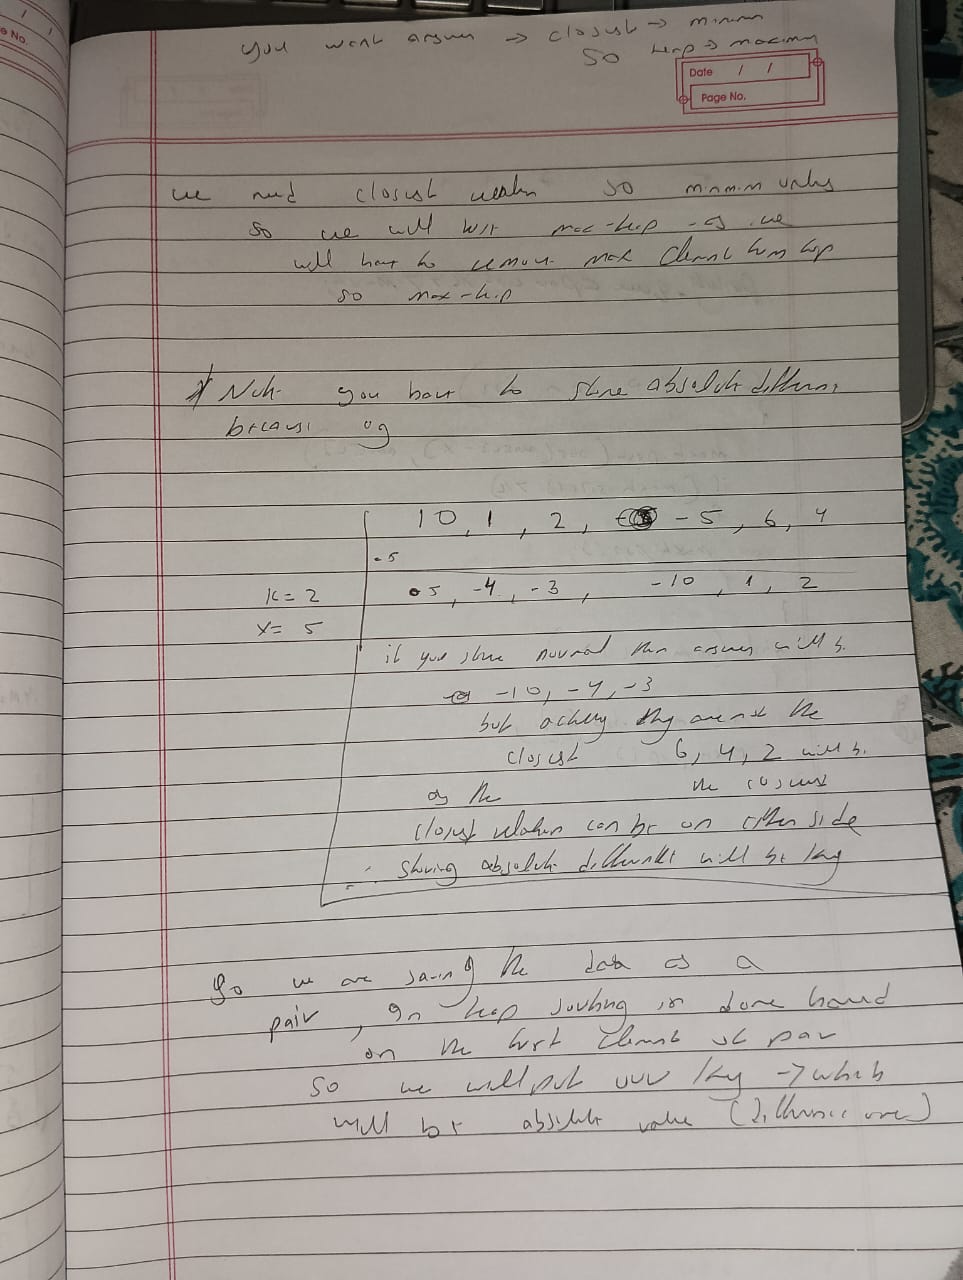 e No.
you want answer → closest → minimum
so heap → maximum
Date / /
Page No.
we need closest so minimum values
so we will use max-heap as we
will have to remove max element from top
so max-heap
* Note you have to store absolute difference
because og
10, 1, 2, -5, 6, 4
-5
k = 2 5, -4, -3, -10, 1, 2
x = 5
if you store normal then answer will be
-10, -4, -3
but actually they are not the
closest 6, 4, 2 will be
as the the closest
closest can be on other side
∴ storing absolute will be key
So we are saving the data as a
pair, In heap sorting is done based
on the first element of pair
so we will put our key → which
will be absolute value (difference one)